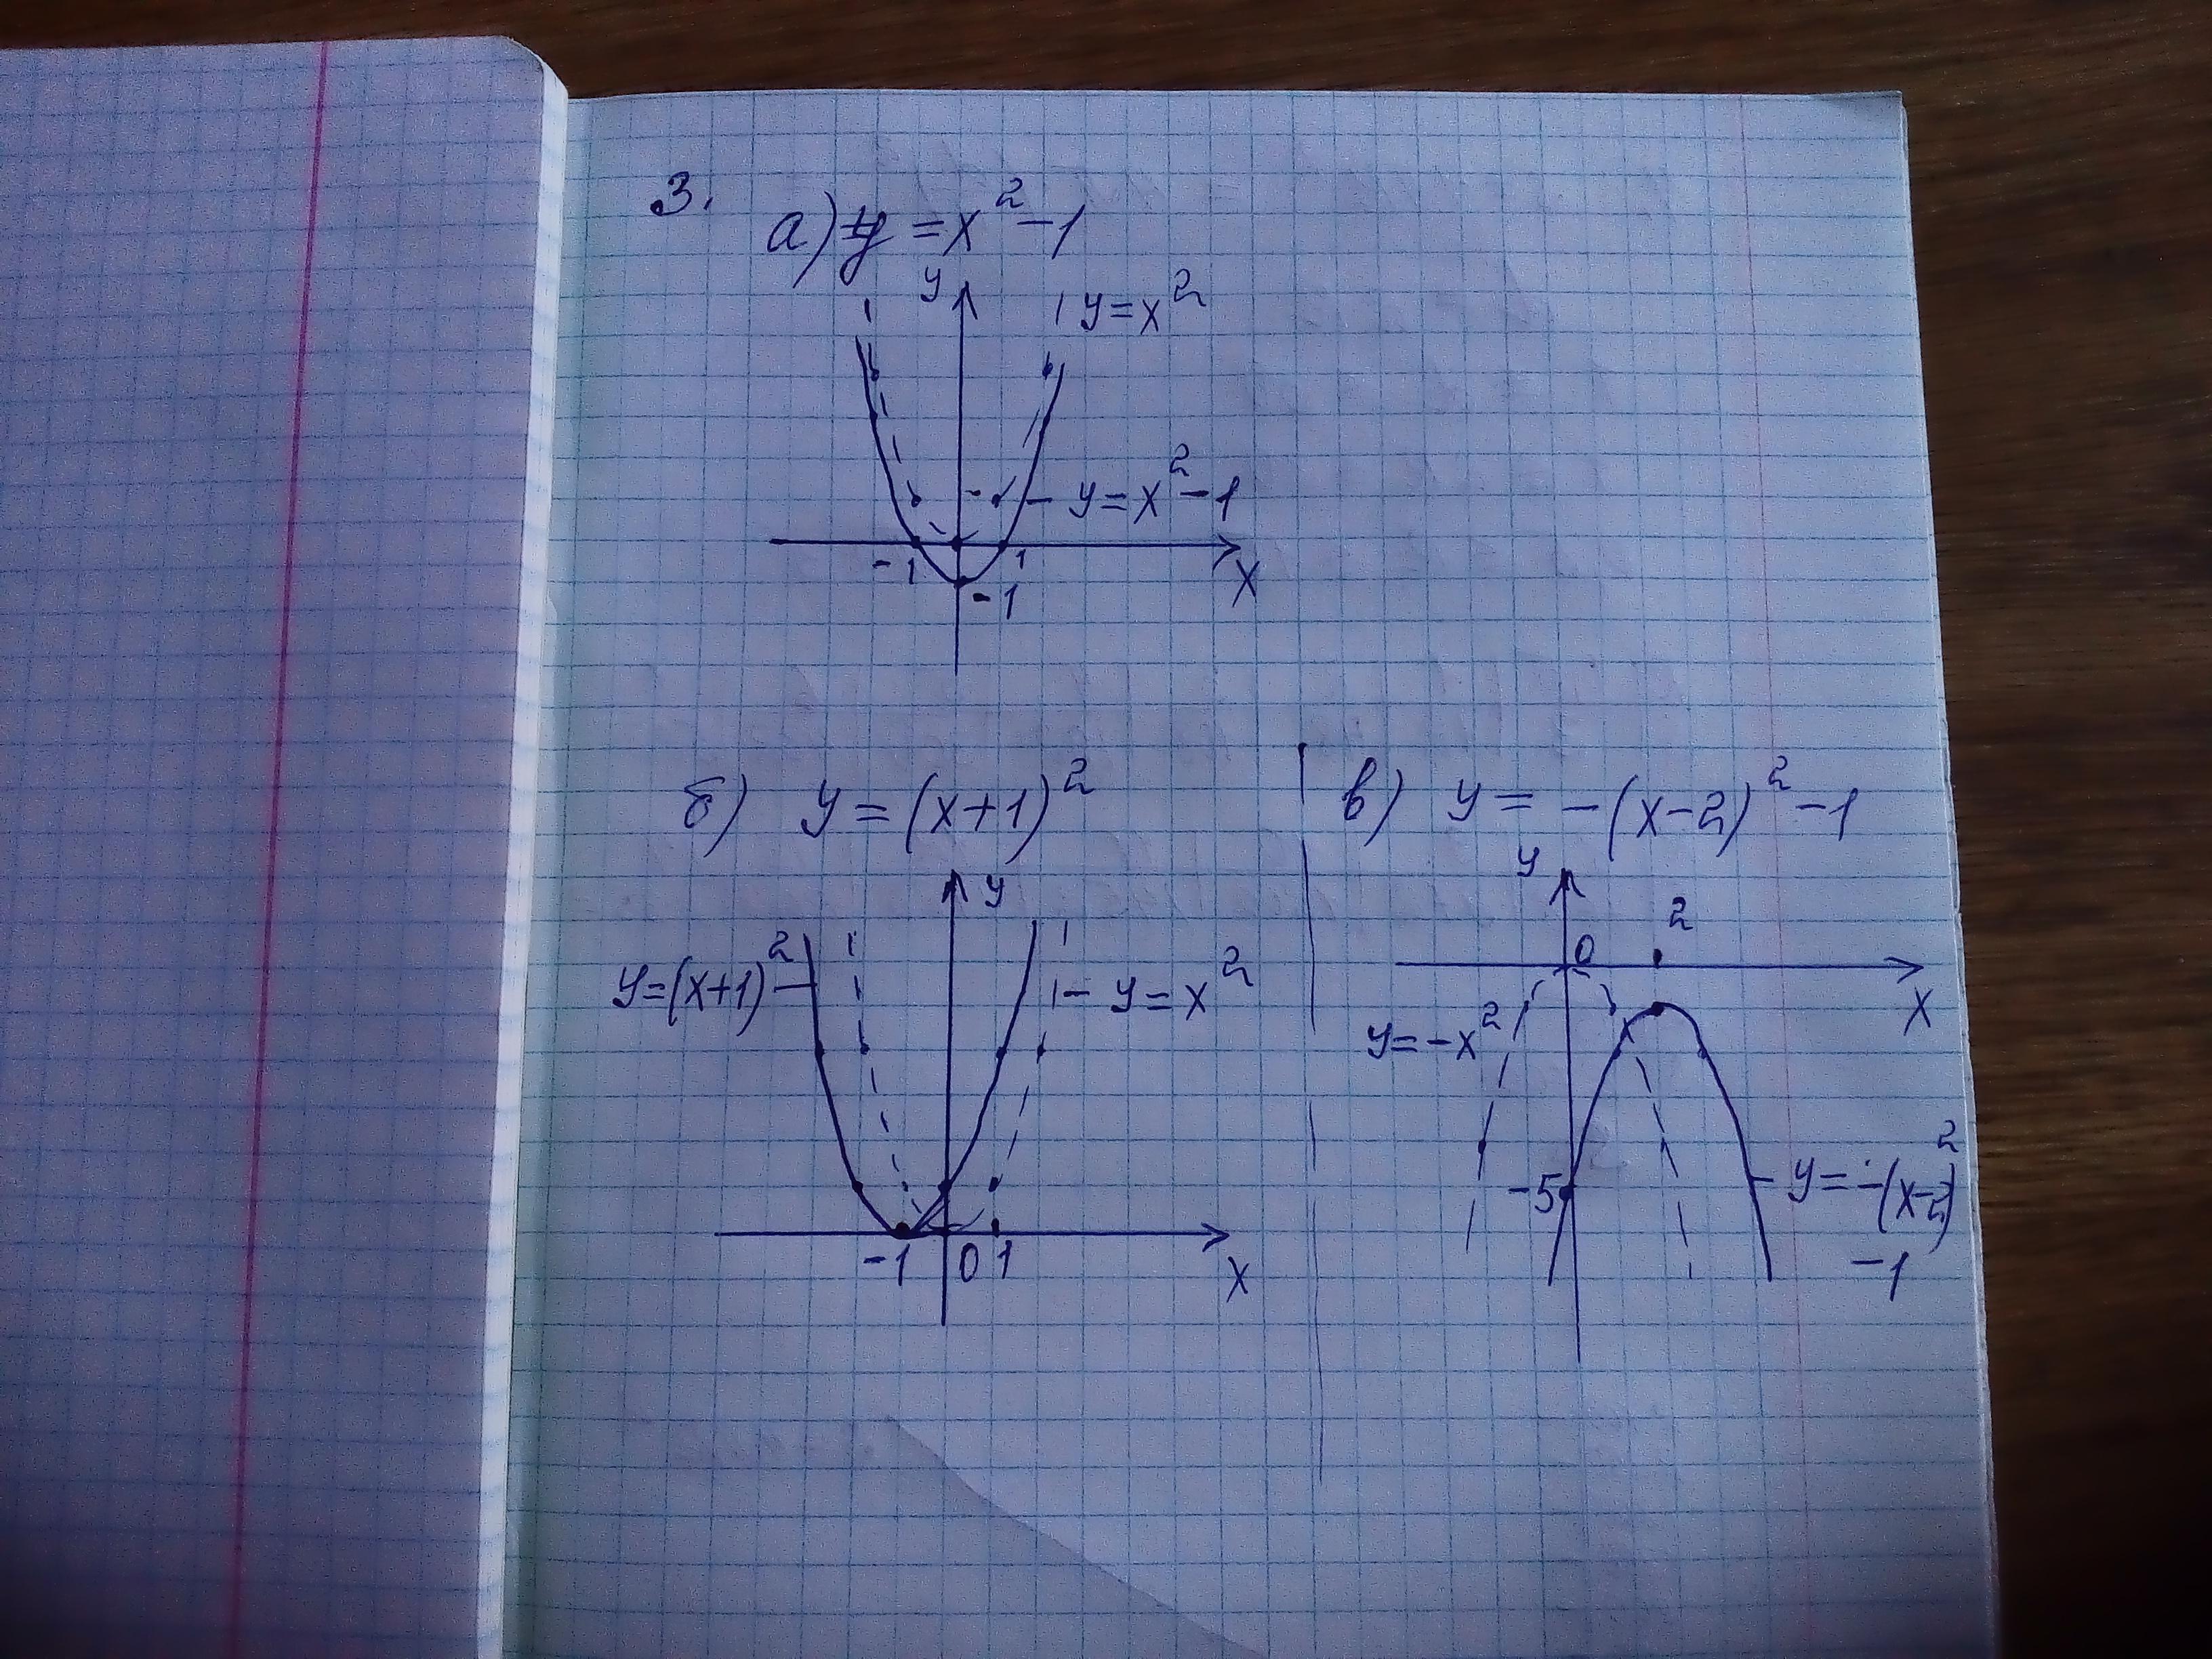 3.
а) y = x² - 1
y
y = x²
y = x² - 1
-1 1
x
-1
б) y = (x+1)²
y
y = (x+1)²
y = x²
-1 0 1
x
в) y = -(x-2)² - 1
y
2
0
x
y = -x²
-5
y = -(x-2)²
-1